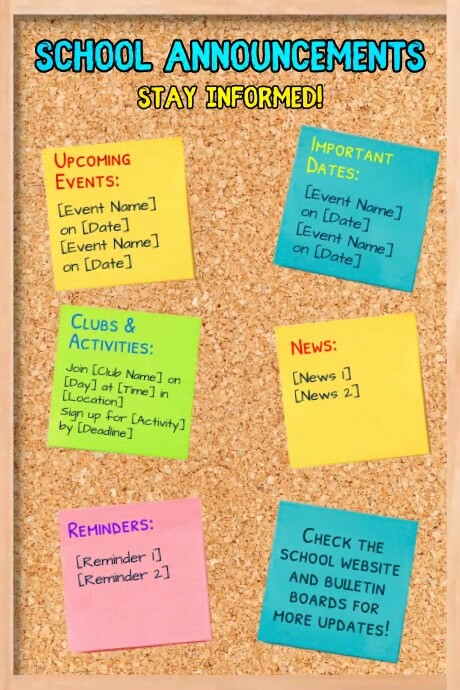 SCHOOL ANNOUNCEMENTS
STAY INFORMED!
UPCOMING
EVENTS:
[Event Name]
on [Date]
[Event Name]
on [Date]
IMPORTANT
DATES:
[Event Name]
on [Date]
[Event Name]
on [Date]
CLUBS &
ACTIVITIES:
Join [Club Name] on
[Day] at [Time] in
[Location]
Sign up for [Activity]
by [Deadline]
NEWS:
[News 1]
[News 2]
REMINDERS:
[Reminder 1]
[Reminder 2]
CHECK THE
SCHOOL WEBSITE
AND BULLETIN
BOARDS FOR
MORE UPDATES!